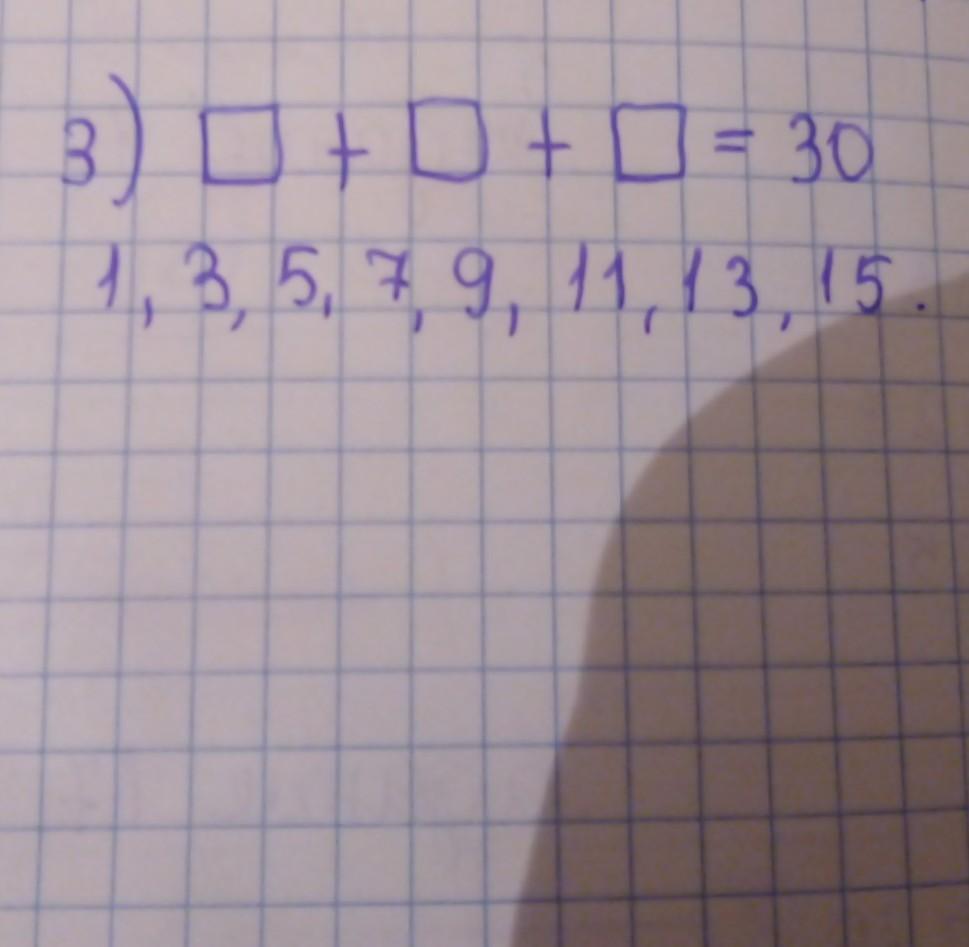 3) □ + □ + □ = 30
1, 3, 5, 7, 9, 11, 13, 15.